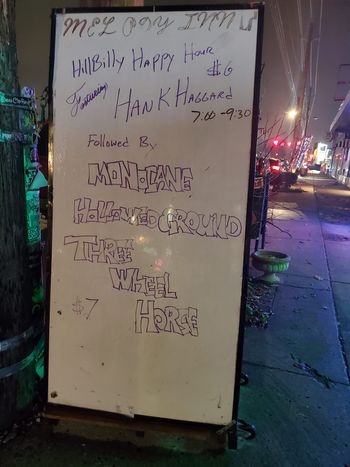 MELODY INN
HillBilly Happy Hour
$6
Featuring HANK HAGGARD
7:00-9:30
Followed By
MONOCANE
HALLOWED GROUND
THREE
WHEEL
HORSE
$7